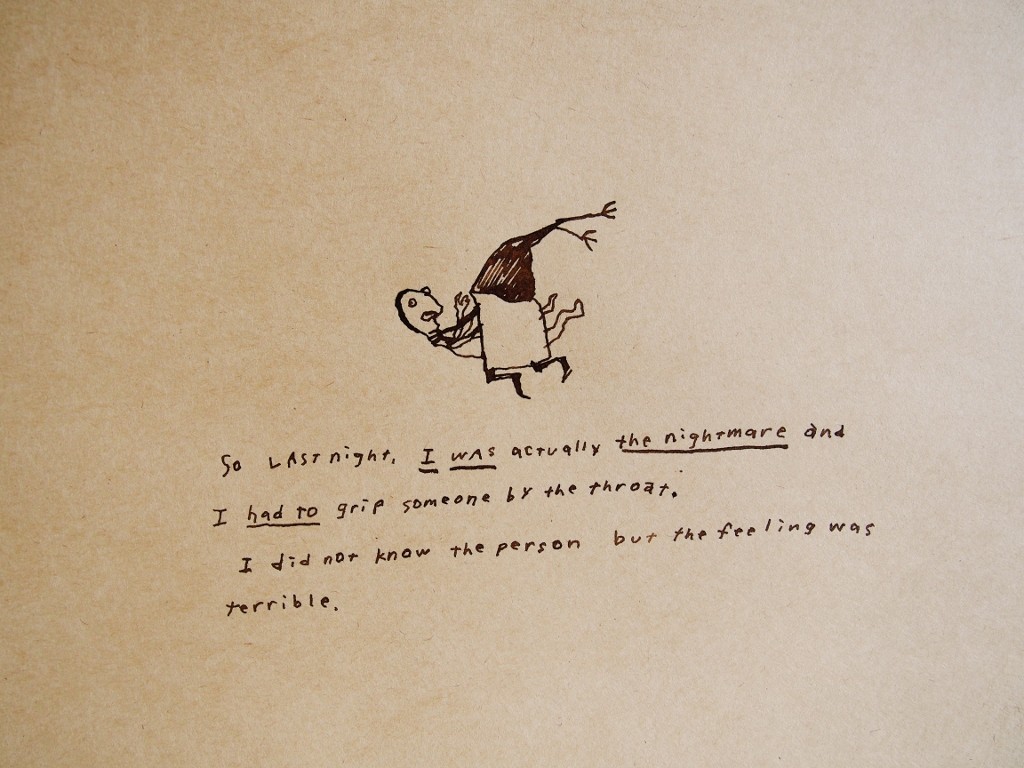 So LAST night, I was actually the nightmare and
I had to grip someone by the throat.
I did not know the person but the feeling was
terrible.